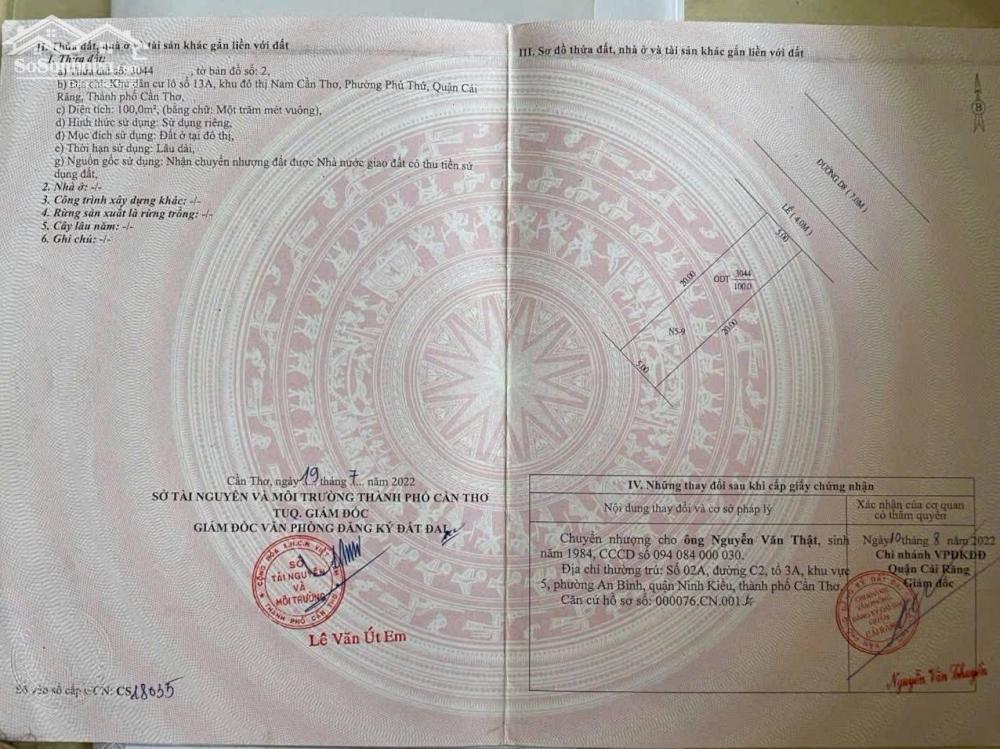 II. Thửa đất, nhà ở và tài sản khác gắn liền với đất
1. Thửa đất:
a) Thửa đất số: 3044 , tờ bản đồ số: 2,
b) Địa chỉ: Khu dân cư lô số 13A, khu đô thị Nam Cần Thơ, Phường Phú Thứ, Quận Cái
Răng, Thành phố Cần Thơ,
c) Diện tích: 100,0m², (bằng chữ: Một trăm mét vuông),
d) Hình thức sử dụng: Sử dụng riêng,
đ) Mục đích sử dụng: Đất ở tại đô thị,
e) Thời hạn sử dụng: Lâu dài,
g) Nguồn gốc sử dụng: Nhận chuyển nhượng đất được Nhà nước giao đất có thu tiền sử
dụng đất,
2. Nhà ở: -/-
3. Công trình xây dựng khác: -/-
4. Rừng sản xuất là rừng trồng: -/-
5. Cây lâu năm: -/-
6. Ghi chú: -/-
Cần Thơ, ngày 19 tháng 7 năm 2022
SỞ TÀI NGUYÊN VÀ MÔI TRƯỜNG THÀNH PHỐ CẦN THƠ
TUQ. GIÁM ĐỐC
GIÁM ĐỐC VĂN PHÒNG ĐĂNG KÝ ĐẤT ĐAI
SỞ
TÀI NGUYÊN
VÀ
MÔI TRƯỜNG
THÀNH PHỐ CẦN THƠ
Lê Văn Út Em
Số vào sổ cấp GCN: CS18035
III. Sơ đồ thửa đất, nhà ở và tài sản khác gắn liền với đất
B
ĐƯỜNG D8 (7.0M)
LỀ (4.0M)
5.00
20.00
ODT 3044
100.0
N5-9
20.00
5.00
IV. Những thay đổi sau khi cấp giấy chứng nhận
Nội dung thay đổi và cơ sở pháp lý
Xác nhận của cơ quan
có thẩm quyền
Chuyển nhượng cho ông Nguyễn Văn Thật, sinh
năm 1984, CCCD số 094 084 000 030.
Địa chỉ thường trú: Số 02A, đường C2, tổ 3A, khu vực
5, phường An Bình, quận Ninh Kiều, thành phố Cần Thơ.
Căn cứ hồ sơ số: 000076.CN.001
Ngày 10 tháng 8 năm 2022
Chi nhánh VPĐKĐĐ
Quận Cái Răng
Giám đốc
CHI NHÁNH
VĂN PHÒNG
ĐĂNG KÝ ĐẤT ĐAI
QUẬN
CÁI RĂNG
Nguyễn Văn Thuyền